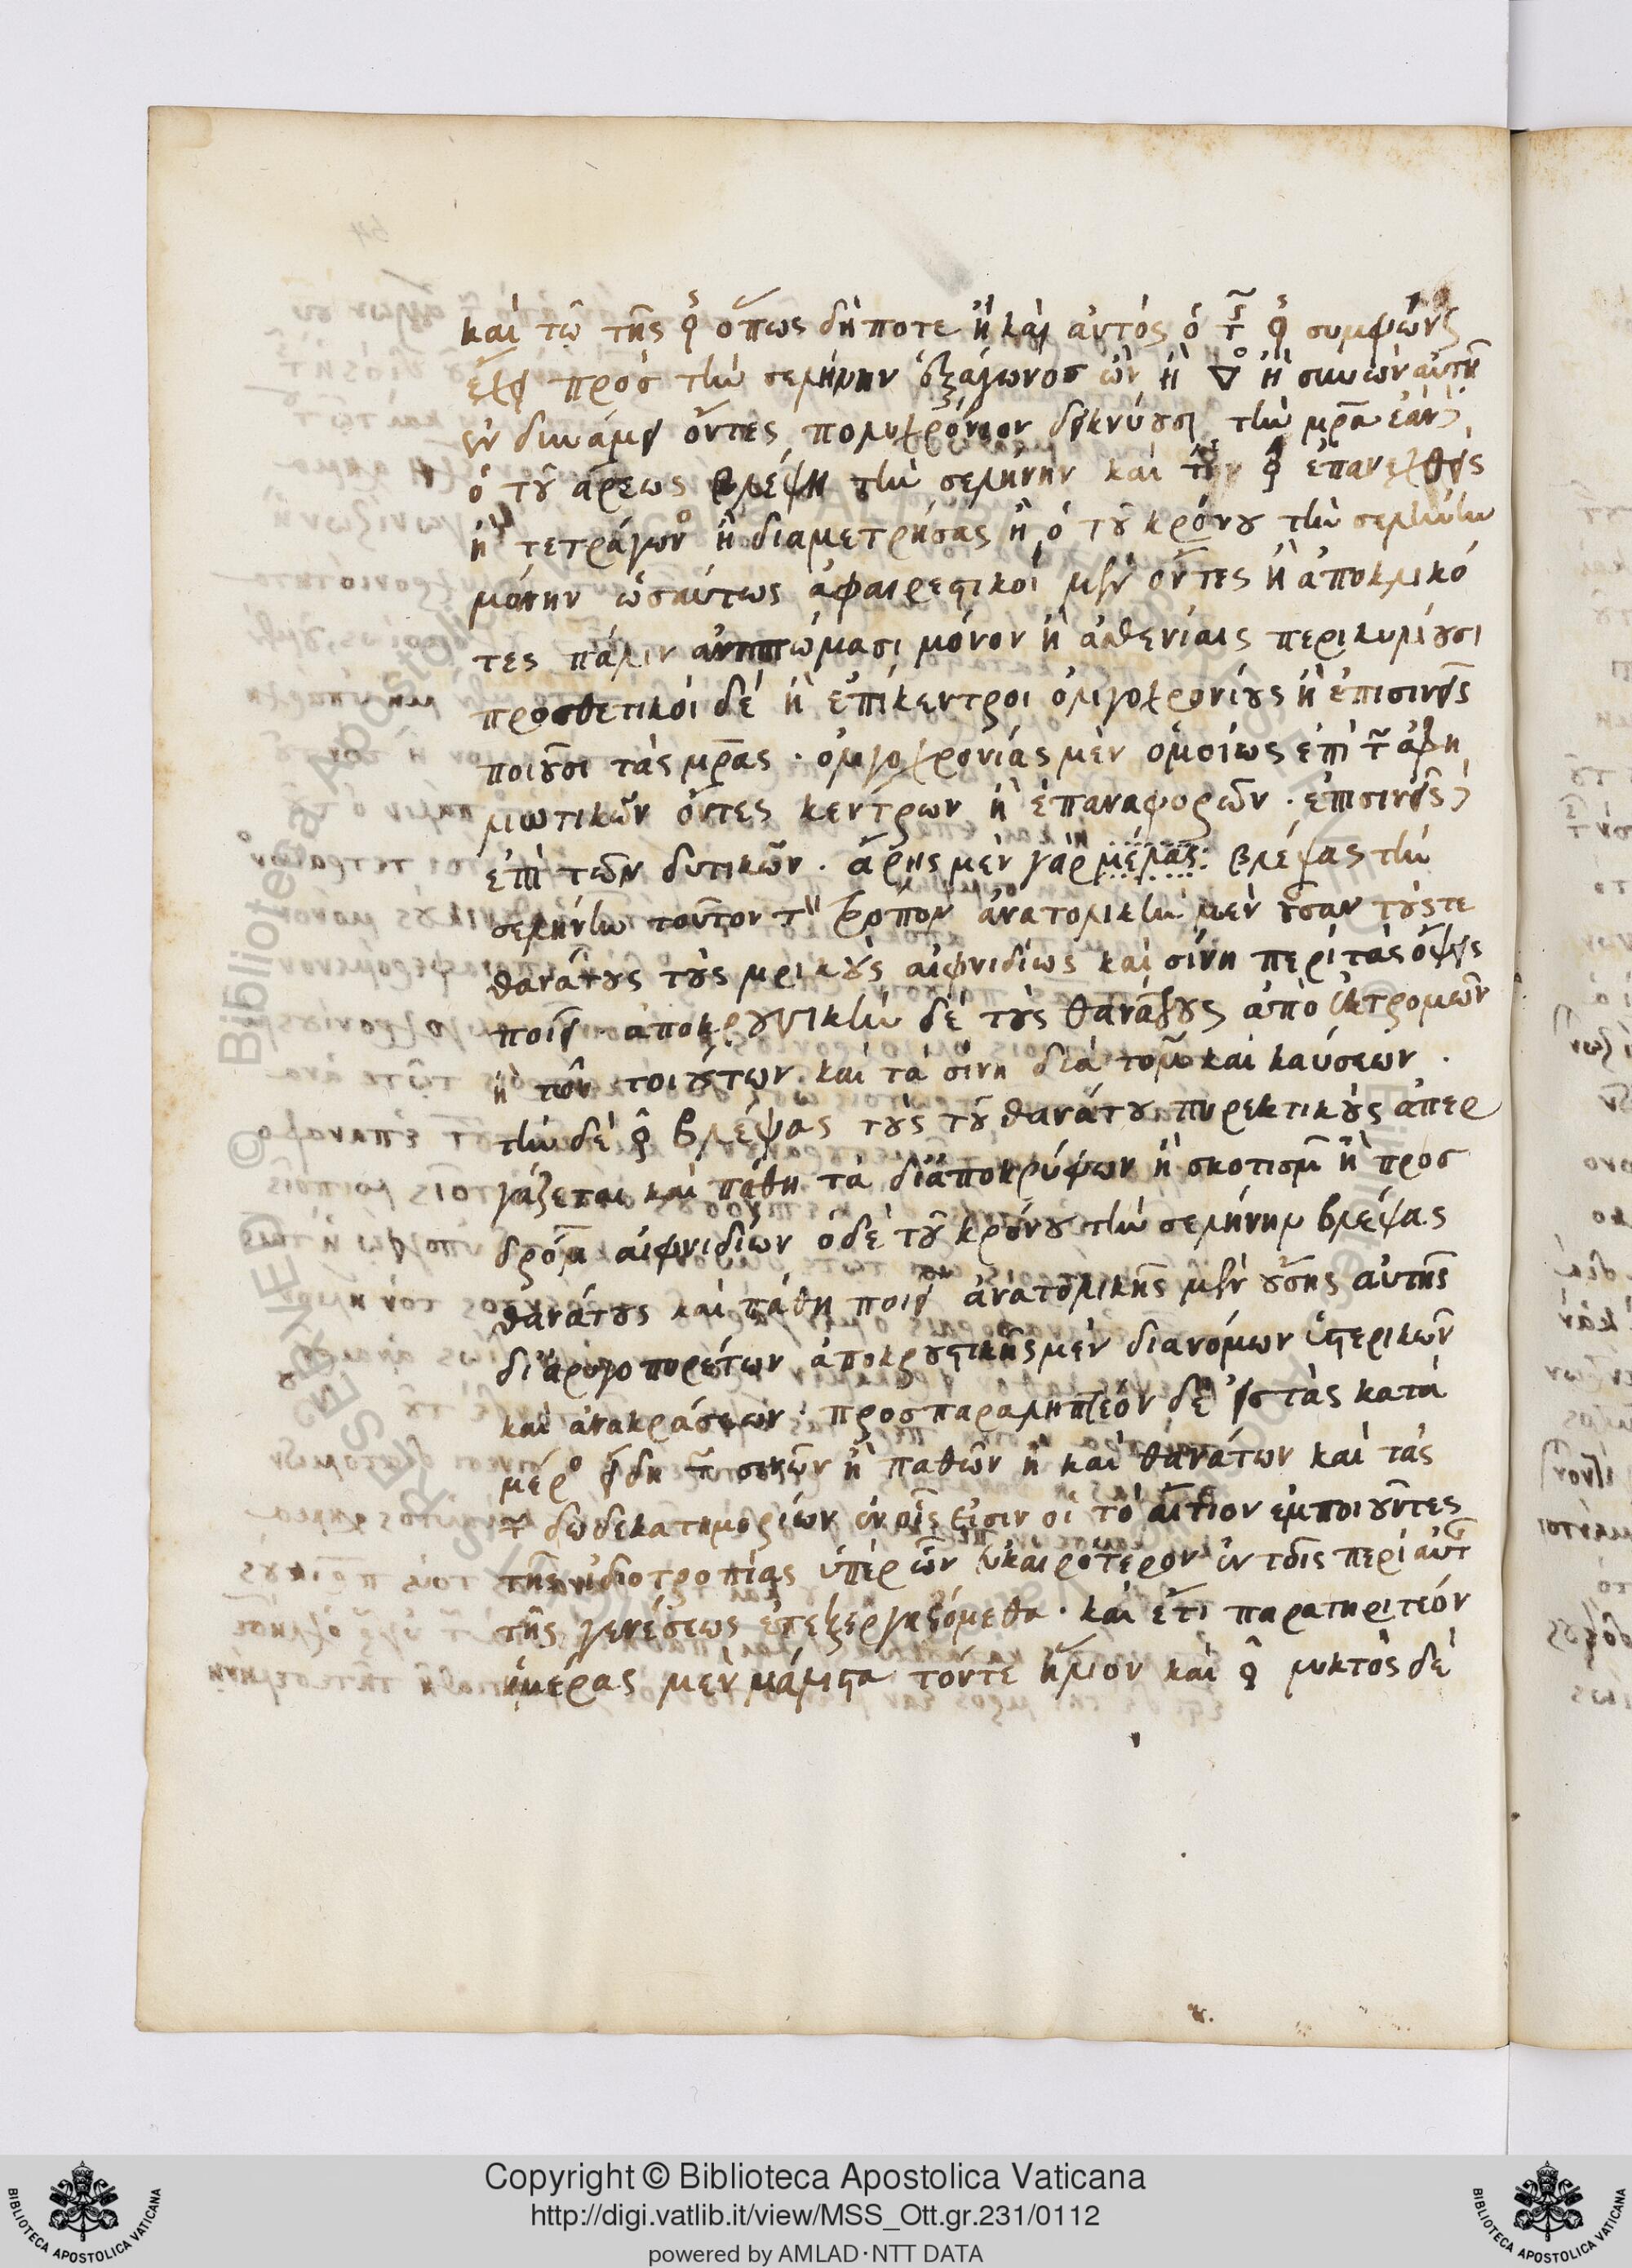 καὶ τῷ τῆς ♀ς ὅπως δήποτε ἢ καὶ αὐτὸς ὁ τῆς ♀ς συμφώνως
ἔχει πρὸς τὴν σελήνην ἑξάγωνος ὢν ἢ ▽ο ἢ συνὼν αὐτῇ
ἐν δυνάμει ὄντες πολυχρόνιον δεικνύουσι τὴν μρα ἐὰν
ὁ τοῦ ἄρεως βλέψη τὴν σελήνην καὶ τὴν ♀ ἐπανεχθεὶς
ἢ τετράγωνο ἢ διαμετρήσας ἢ ὁ τοῦ κρόνου τὴν σελήνην
μόνην ὡσαύτως ἀφαιρετικοὶ μὲν ὄντες ἢ ἀποκλικό
τες πάλιν ώμασι μόνον ἢ ἀσθενίαις περικυλίουσι
προσθετικοὶ δὲ ἢ ἐπίκεντροι ὀλιγοχρονίους ἢ ἐπισινεῖς
ποιοῦσι τὰς μρας · ὀλιγοχρονίας μὲν ὁμοίως ἐπὶ τ ἀφη
λιωτικῶν ὄντες κέντρων ἢ ἐπαναφορῶν · ἐπισινεῖς
ἐπὶ τῶν δυτικῶν · ἄρης μὲν γὰρ βλέψας τὴν
σελήνην τοῦτον τ τρόπον ἀνατολικὴν μὲν οὖσαν τούς τε
θανάτους τοὺς μρικοὺς αἰφνιδίως καὶ σίνη περὶ τὰς ὄψεις
ποιεῖ · ἀποκρουστικὴν δὲ τοὺς θανάτους ἀπὸ ἐκτρομῶν
ἢ τῶν τοιούτων · καὶ τὰ σίνη διὰ τομ καὶ καύσεων ·
τὴν δὲ ♀ βλέψας τοὺς τοῦ θανάτου πυρεκτικοὺς ἀπερ
γάζεται καὶ πάθη τὰ διἀποκρύφων ἢ σκοτισμ ἢ προσ
δρόμ αἰφνιδίων ὁ δὲ τοῦ κρόνου τὴν σελήνην βλέψας
θανάτους καὶ πάθη ποιεῖ ἀνατολικῆς μὲν οὔσης αὐτῆς
δι'ἀρυγοπυρέτων ἀποκρουστικῆς μὲν διανόμων ὑστερικῶν
καὶ ἀνακράσεων · προσπαραληπτέον δὲ εἰς τὰς κατὰ
μέρο εἴδη τ σινῶν ἢ παθῶν ἢ καὶ θανάτων καὶ τὰς
τ δωδεκατημορίων ἐν οἷς εἰσιν οἱ τὸ αἴτιον ἐμποιοῦντες
τῆς ἰδιοτροπίας ὑπὲρ ὧν εὐκαιρότερον ἐν τοῖς περὶ αὐτ
τῆς γενέσεως ἐπεξεργαζόμεθα · καὶ ἔτι παρατηριτέον
ἡμέρας μὲν μάλιστα τόν τε ἥλιον καὶ ♀ νυκτὸς δὲ
Copyright © Biblioteca Apostolica Vaticana
http://digi.vatlib.it/view/MSS_Ott.gr.231/0112
powered by AMLAD·NTT DATA